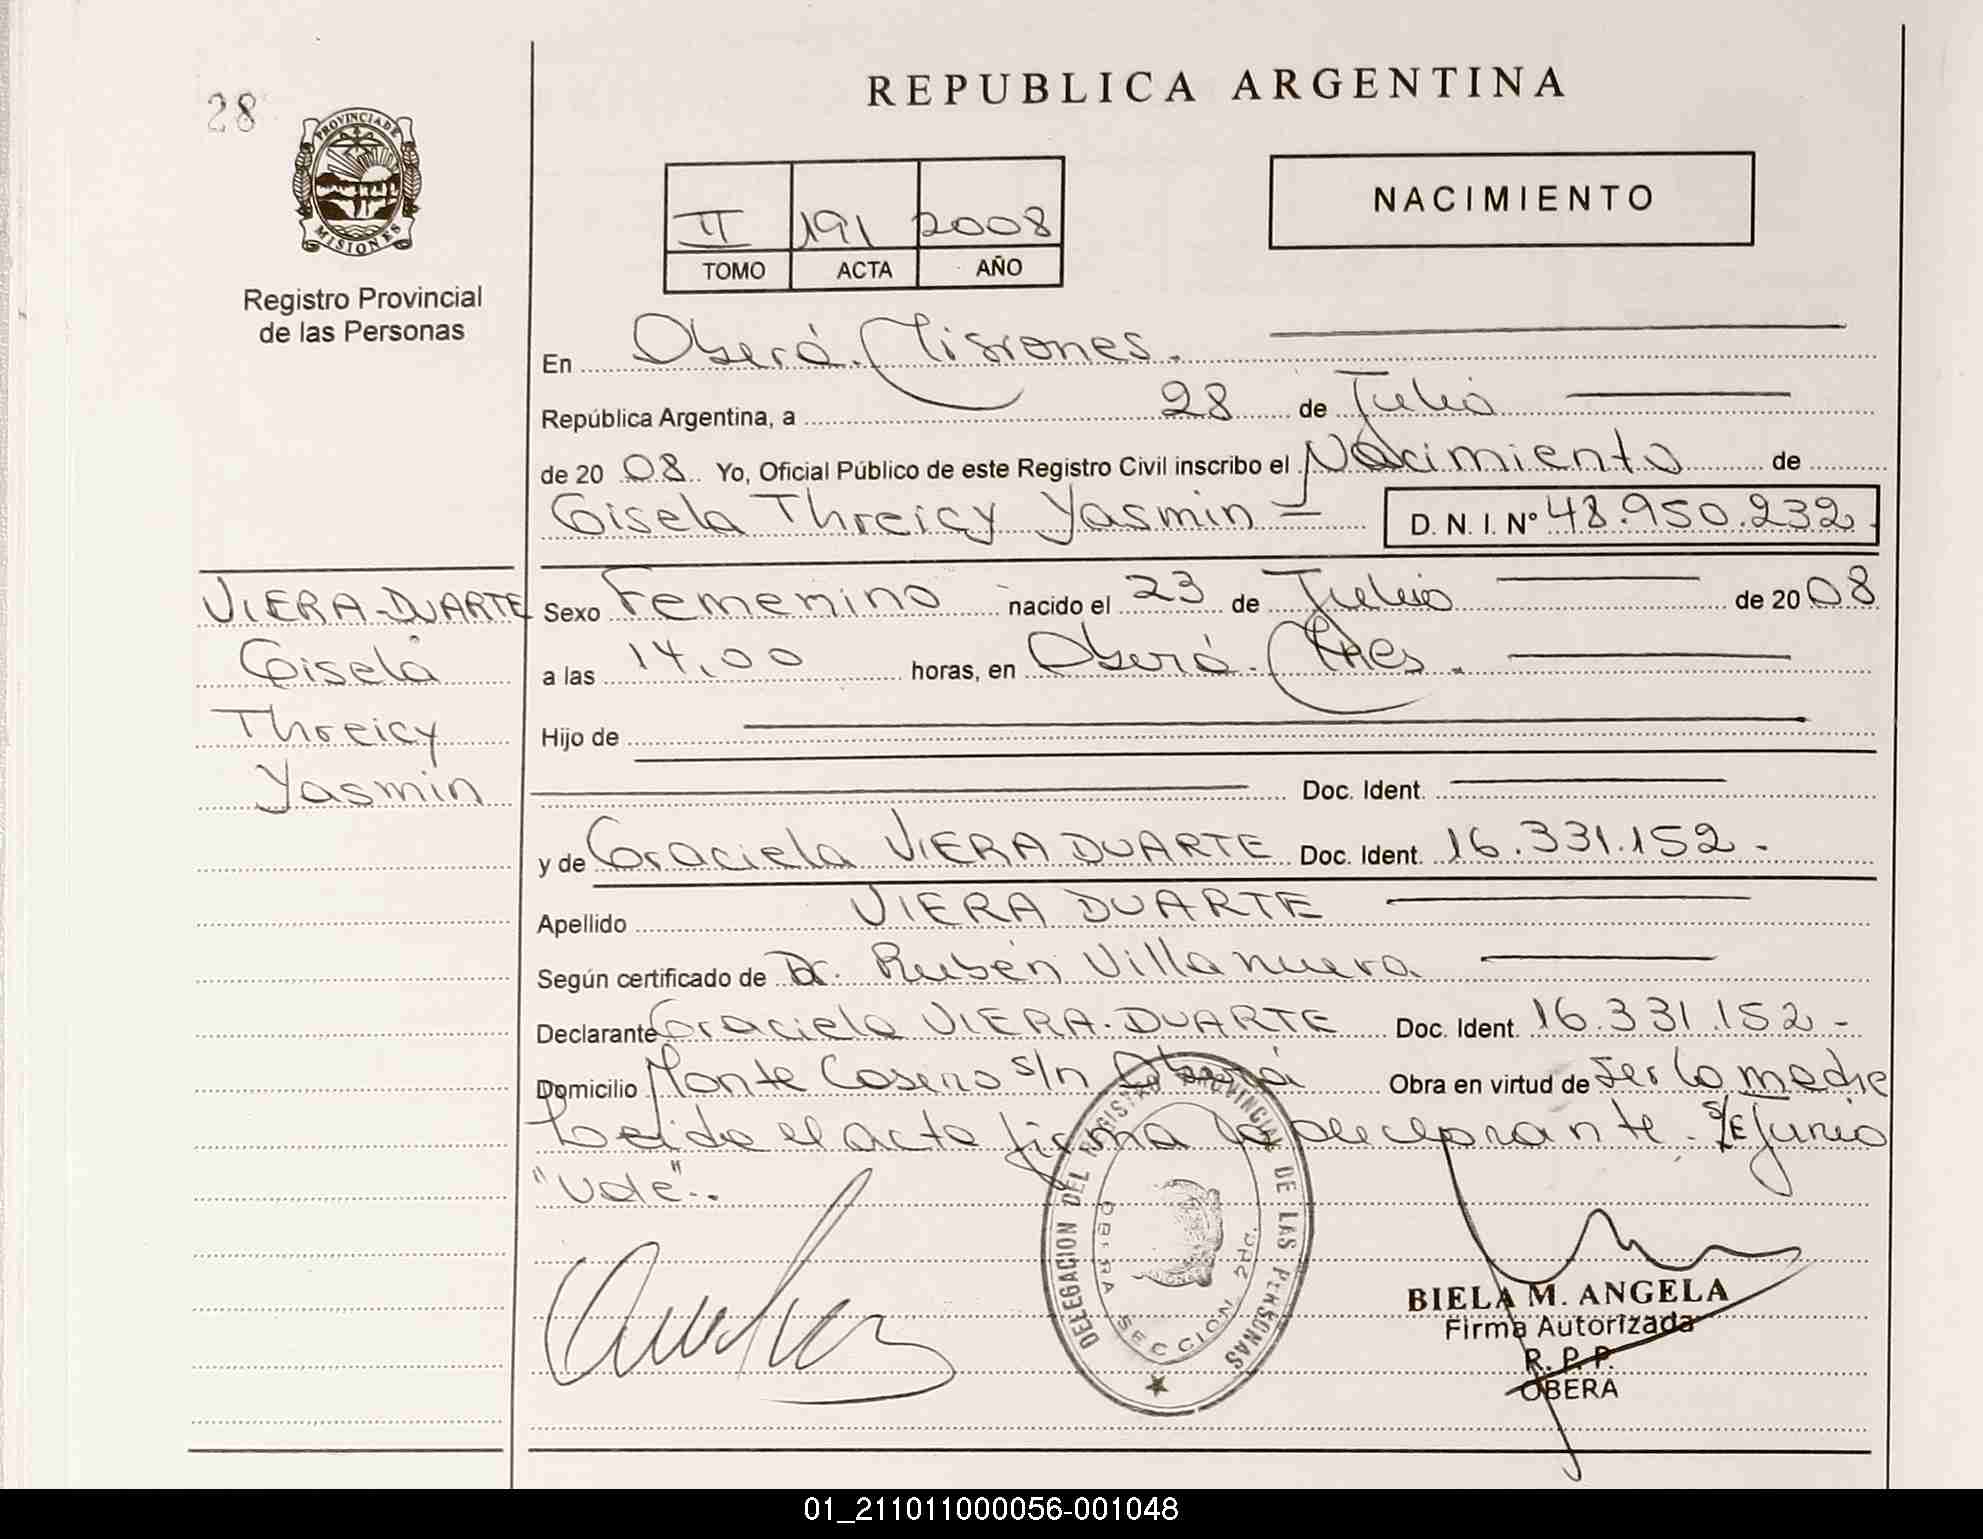 28
PROVINCIA DE
MISIONES
Registro Provincial
de las Personas
REPUBLICA ARGENTINA
II 191 2008
TOMO ACTA AÑO
NACIMIENTO
En Oberá. Misiones.
República Argentina, a 28 de Julio
de 20 08. Yo, Oficial Público de este Registro Civil inscribo el Nacimiento de
Gisela Threicy Yasmin D. N. I. Nº 48.950.232
VIERA-DUARTE
Gisela
Threicy
Yasmin
Sexo Femenino nacido el 23 de Julio de 20 08
a las 14,00 horas, en Oberá. Mnes.
Hijo de
Doc. Ident.
y de Graciela VIERA DUARTE Doc. Ident. 16.331.152.-
Apellido VIERA DUARTE
Según certificado de Dr. Rubén Villanueva
Declarante Graciela VIERA-DUARTE Doc. Ident. 16.331.152-
Domicilio Monte Casero s/n Oberá Obra en virtud de ser la madre
Leida el acta firma la declarante. S/E Junio
"Vale".
DELEGACION DEL REGISTRO PROVINCIAL DE LAS PERSONAS
OBERA SECCION 2da.
BIELA M. ANGELA
Firma Autorizada
R. P. P.
OBERA
01_211011000056-001048